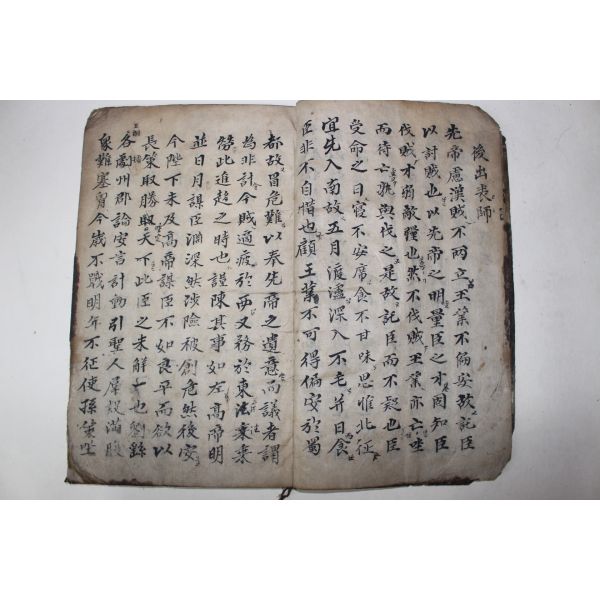 後出表師
先帝慮漢賊不兩立王業不偏安故託臣
以討賊也以先帝之明量臣之才固知臣
伐賊才弱敵彊也然不伐賊王業亦亡坐
而待亡孰與伐之是故託臣而不疑也臣
受命之日寢不安席食不甘味思惟北征
宜先入南故五月渡瀘深入不毛并日食
臣非不自惜也顧王業不可得偏安於蜀
都故冒危難以奉先帝之遺意而議者謂
為非計今賊適疲於西又務於東法乘
勞此進趨之時也謹陳其事如左高帝明
並日月謀臣淵深然涉險被創危然後安
今陛下未及高帝謀臣不如良平而欲以
長策取勝取天下此臣之未解一也劉繇
各處州郡論安言計動引聖人羣疑滿腹
衆難塞胷今歲不戰明年不征使孫策坐